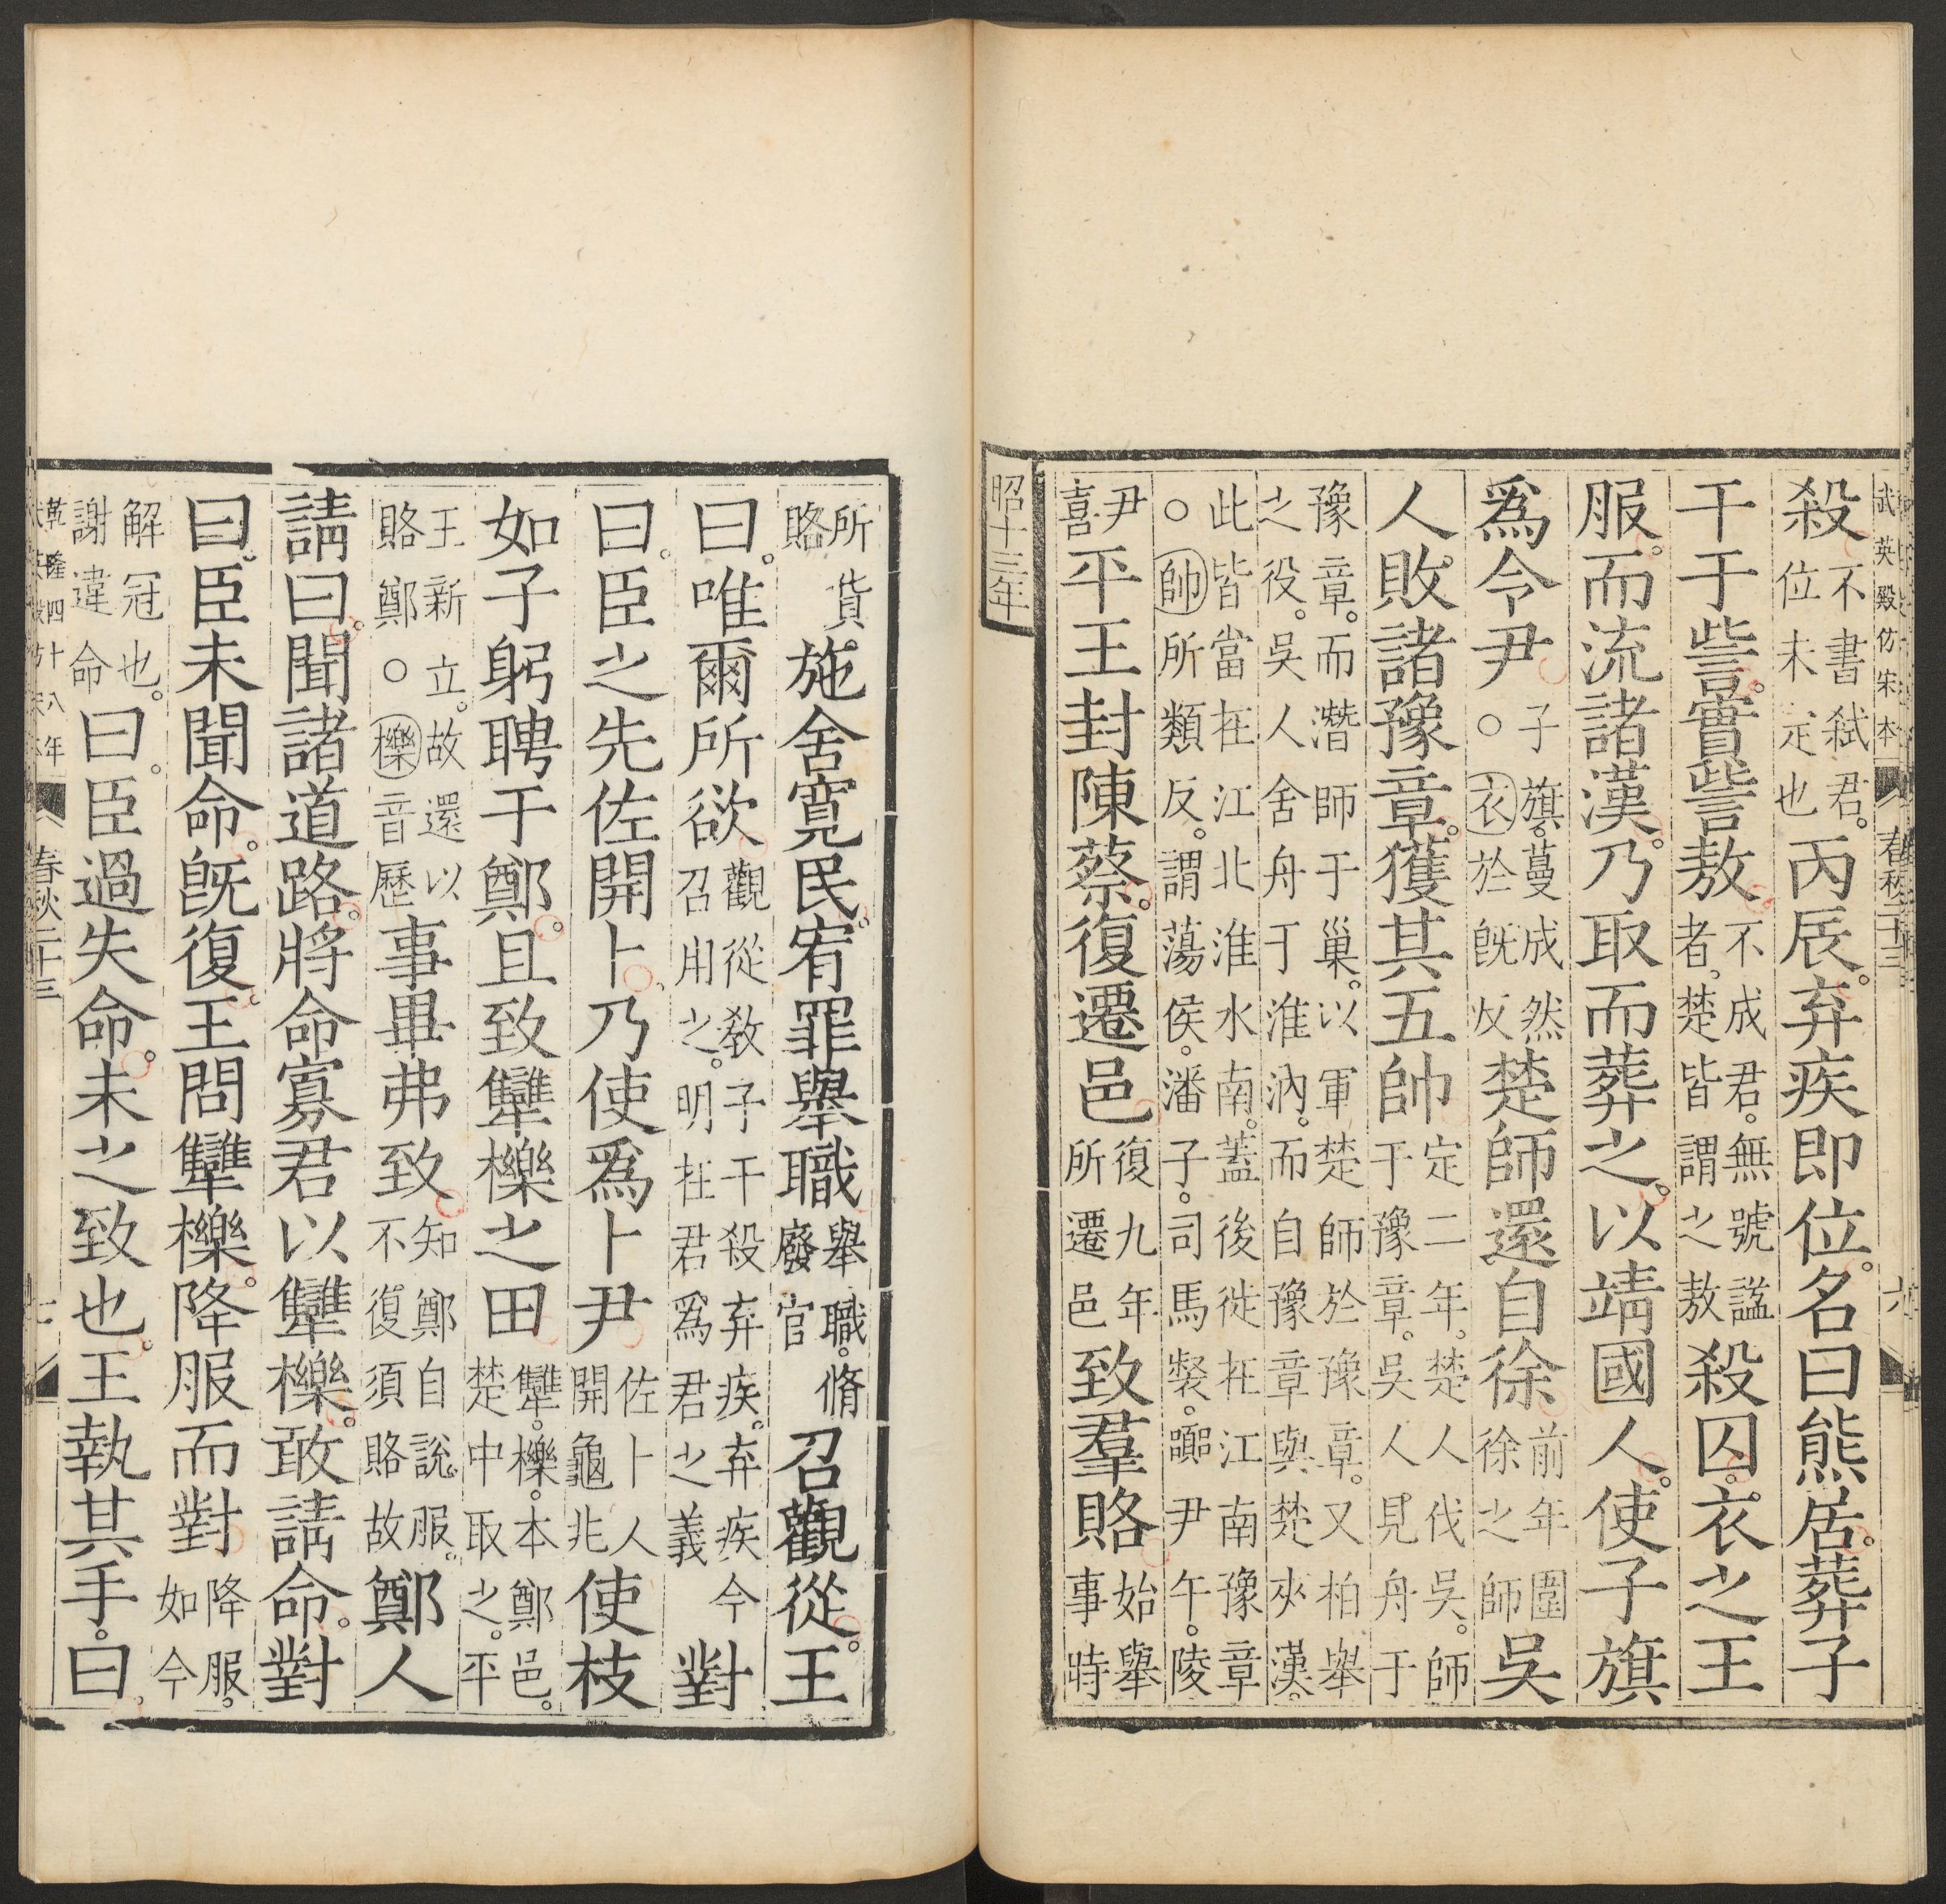 武英殿仿宋本 春秋二十三 六
殺不書弒君。位未定也丙辰。弃疾即位。名曰熊居。葬子
干于訾。實訾敖。不成君。無號諡者。楚皆謂之敖殺囚。衣之王
服。而流諸漢。乃取而葬之。以靖國人。使子旗
爲令尹子旗。蔓成然○衣於旣反楚師還自徐前年圍徐之師吳
人敗諸豫章。獲其五帥定二年。楚人伐吳。師于豫章。吳人見舟于
豫章。而潛師于巢。以軍楚師於豫章。又柏舉之役。吳人舍舟于淮汭。而自豫章與楚夾漢。
此皆當在江北淮水南。蓋後徙在江南豫章○帥所類反。謂蕩侯。潘子。司馬裻。嚻尹午。陵
尹喜平王封陳蔡。復遷邑復九年所遷邑致羣賂始舉事時
昭十三年
所貨。賂施舍寬民。宥罪舉職舉職。脩廢官召觀從。王
曰。唯爾所欲觀從教子干殺弃疾。弃疾今召用之。明在君爲君之義對
曰。臣之先佐開卜。乃使爲卜尹佐卜人開龜兆使枝
如子躬聘于鄭。且致犫櫟之田犫。櫟。本鄭邑。楚中取之。平
王新立。故還以賂鄭○櫟音歷事畢弗致知鄭自說服。不復須賂故鄭人
請曰。聞諸道路。將命寡君以犫櫟。敢請命。對
曰。臣未聞命。旣復。王問犫櫟。降服而對降服。如今
解冠也。謝違命曰。臣過失命。未之致也。王執其手。曰。
乾隆四十八年 武英殿仿宋本 春秋二十三